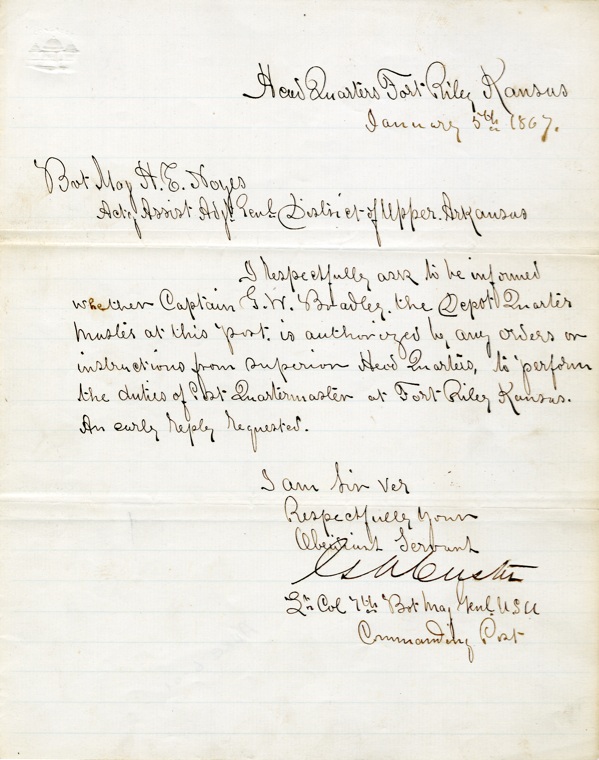 Head Quarters Fort Riley Kansas
January 5th 1867.
Bvt Maj H. E. Noyes
Actg Assist Adjt Genl District of Upper Arkansas
I Respectfully ask to be informed
whether Captain G. W. Bradley, the Depot Quarter
Master at this Post. is authorized by any orders or
instructions from superior Head Quarters, to perform
the duties of Post Quartermaster at Fort Riley Kansas.
An early Reply Requested.
I am Sir Ver
Respectfully Your
Obedient Servant
G A Custer
Lt Col 7th Bvt Maj Genl U.S.A
Commanding Post